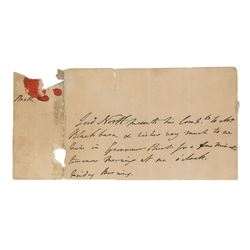 North
Lord North presents his Comp.ts to Mr
Blackburn & wishes very much to see
him in Grosvenor Street for a few min.s
tomorrow morning at one o'clock.
Sunday Morning.